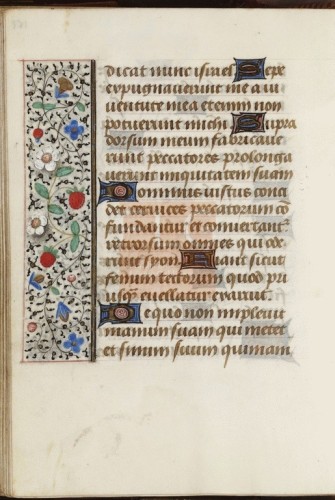 dicat nunc israel Sepe
expugnaverunt me a iu
ventute mea etenim non
potuerunt michi Supra
dorsum meum fabricave
runt peccatores prolonga
verunt iniquitatem suam
Dominus iustus conci
det cervices peccatorum cō
fundantur et convertant
retrorsum omnes qui ode
runt syon Fiant sicut
fenum tectorum quod pri
usq̄ evellatur exaruit
De quo non implevit
manum suam qui metet
et sinum suum qui mani